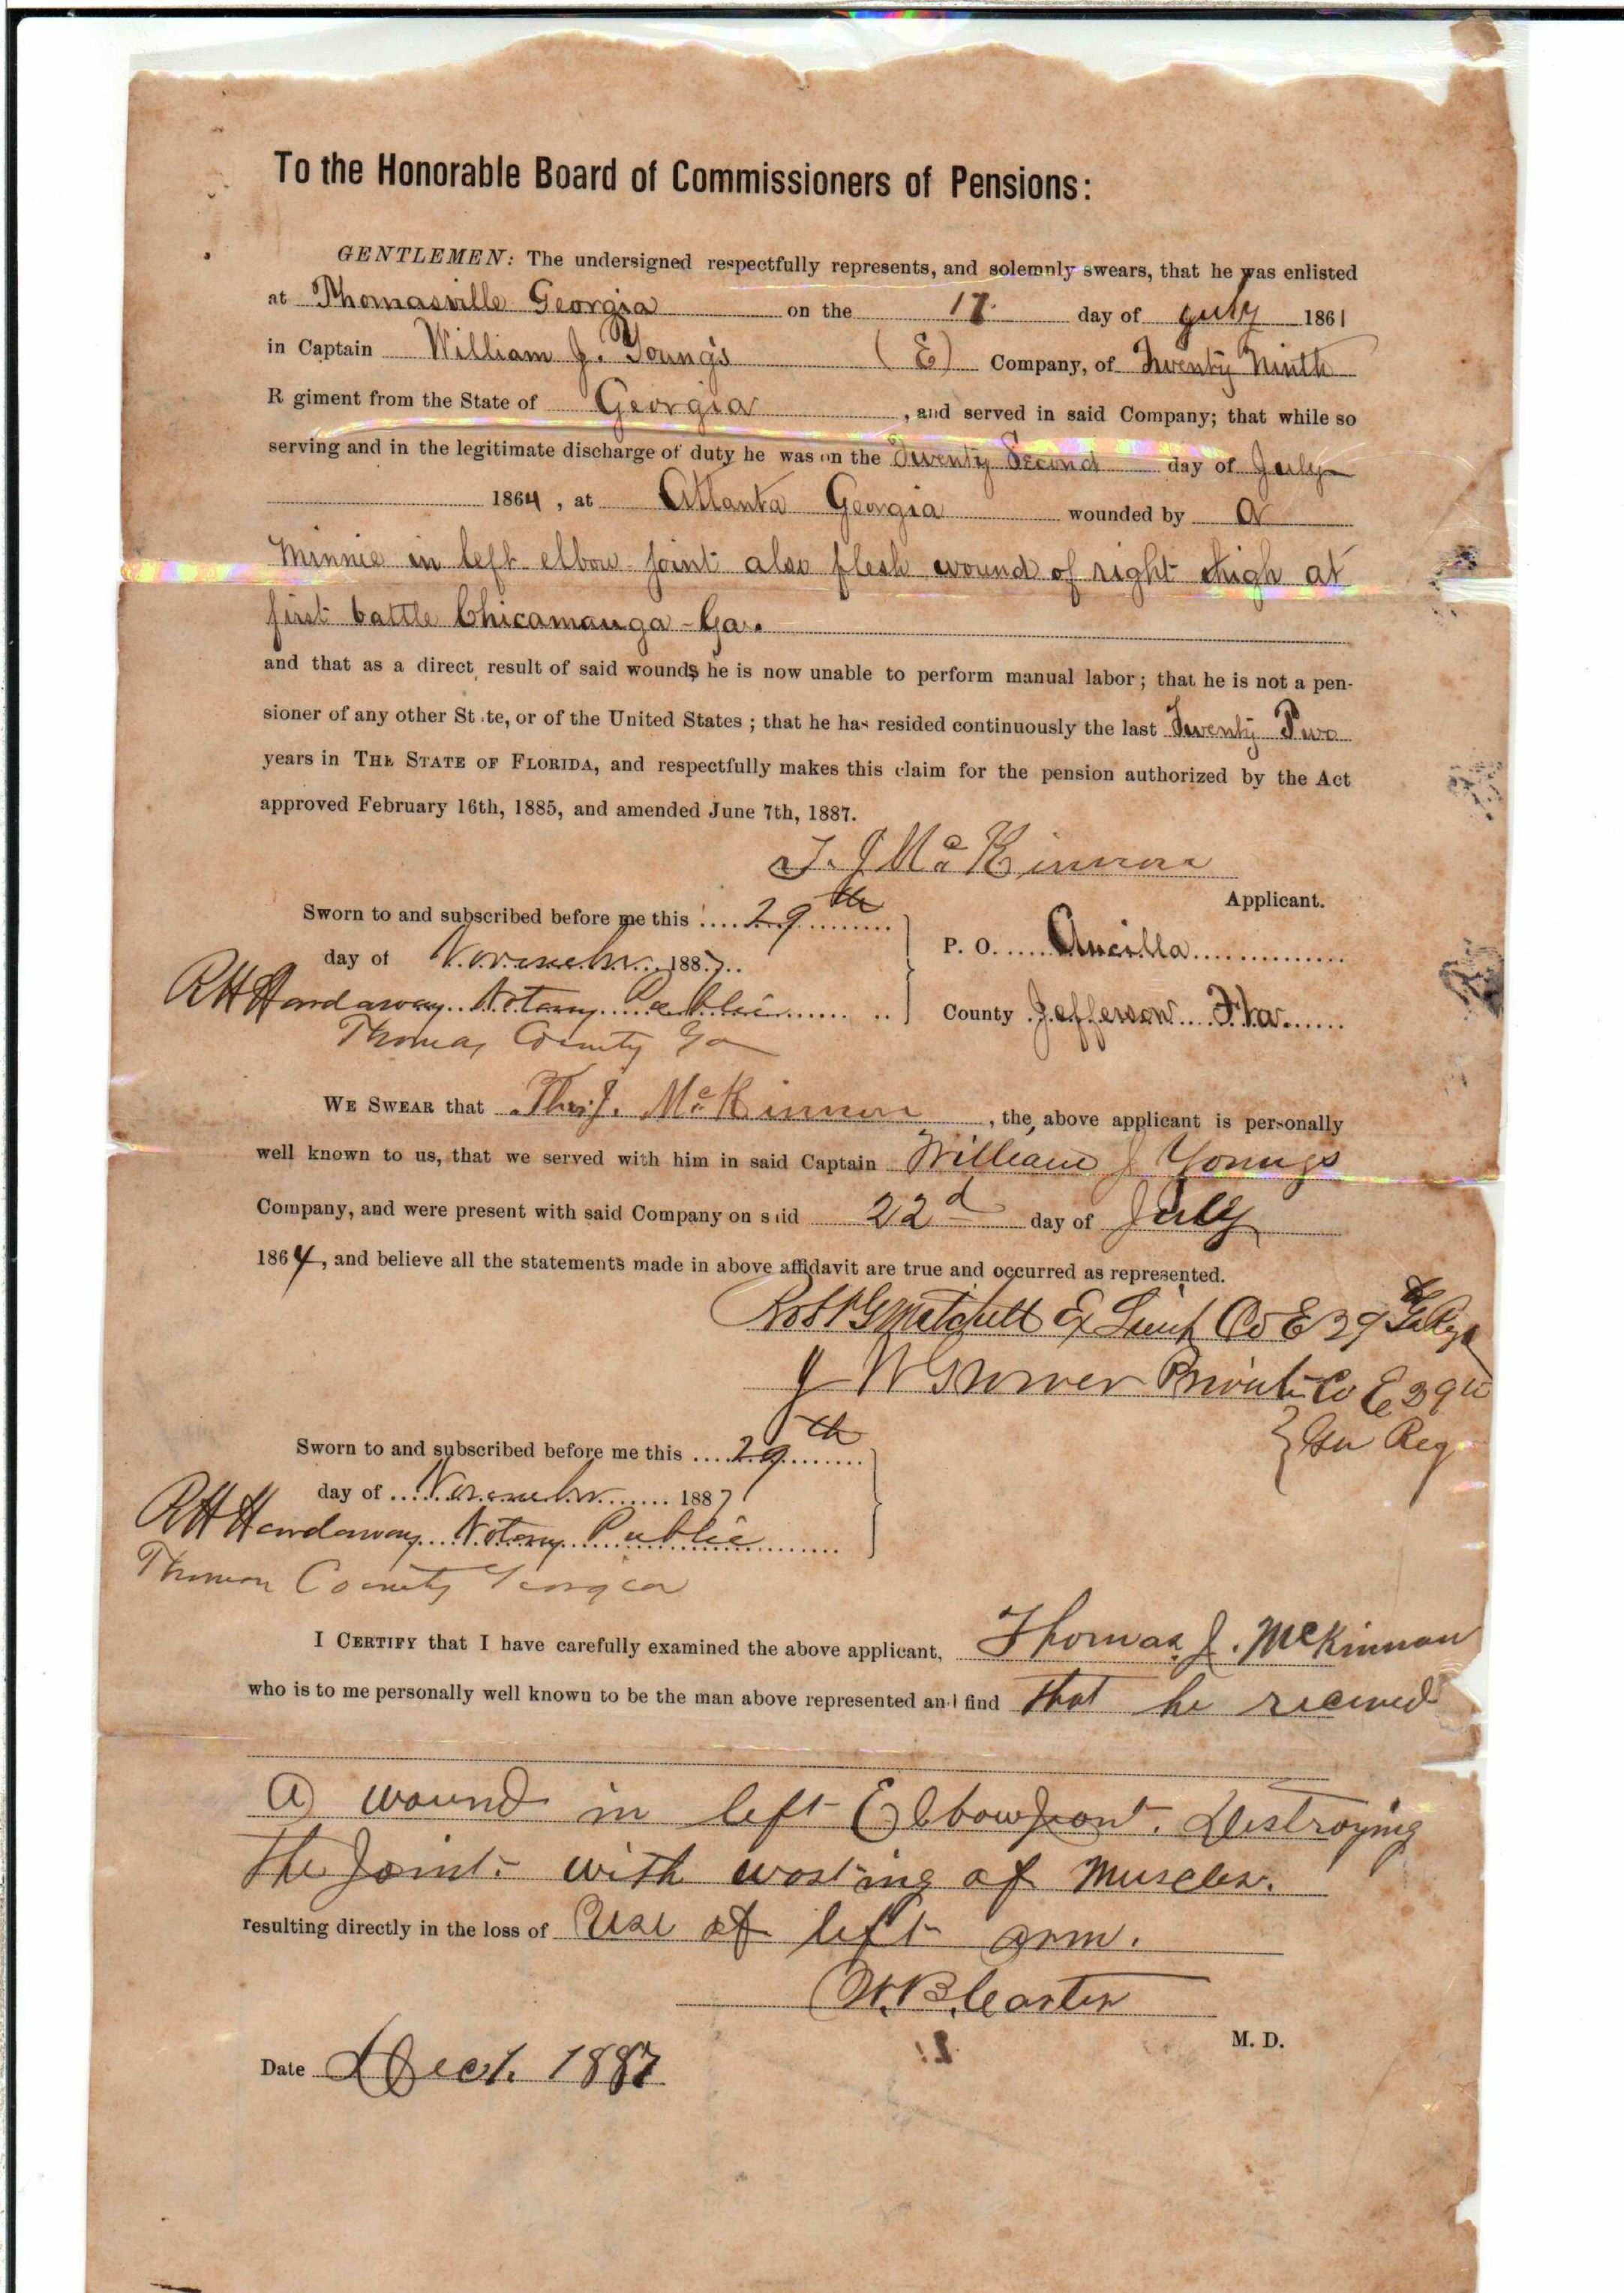 To the Honorable Board of Commissioners of Pensions:
GENTLEMEN: The undersigned respectfully represents, and solemnly swears, that he was enlisted
at Thomasville Georgia on the 17 day of July 1861
in Captain William J. Young's (E) Company, of Twenty Ninth
R giment from the State of Georgia, and served in said Company; that while so
serving and in the legitimate discharge of duty he was on the Twenty Second day of July
1864, at Atlanta Georgia wounded by a
Minnie in left elbow joint also flesh wound of right thigh at
first battle Chicamauga - Ga.
and that as a direct result of said wounds he is now unable to perform manual labor; that he is not a pen-
sioner of any other St te, or of the United States; that he has resided continuously the last Twenty Two
years in THE STATE OF FLORIDA, and respectfully makes this claim for the pension authorized by the Act
approved February 16th, 1885, and amended June 7th, 1887.
T. J McKinnon
Applicant.
Sworn to and subscribed before me this 29th
day of November 1887
R H Hardaway Notary Public
Thomas County Ga
P. O. Aucilla
County Jefferson Fla.
WE SWEAR that Thos. J. McKinnon, the above applicant is personally
well known to us, that we served with him in said Captain William J Youngs
Company, and were present with said Company on said 22d day of July
1864, and believe all the statements made in above affidavit are true and occurred as represented.
Robt G Mitchell Ex Lieut Co E 29th Ga Regt
J W Private Co E 29th
Ga Reg
Sworn to and subscribed before me this 29th
day of November 1887
R H Hardaway Notary Public
Thomas County Georgia
I CERTIFY that I have carefully examined the above applicant, Thomas J. McKinnon
who is to me personally well known to be the man above represented and find that he recieved
a wound in left Elbow Joint. Destroying
the Joint. with wasting of Muscles.
resulting directly in the loss of Use of left arm.
W. B. Carter
M. D.
Date Dec 1. 1887